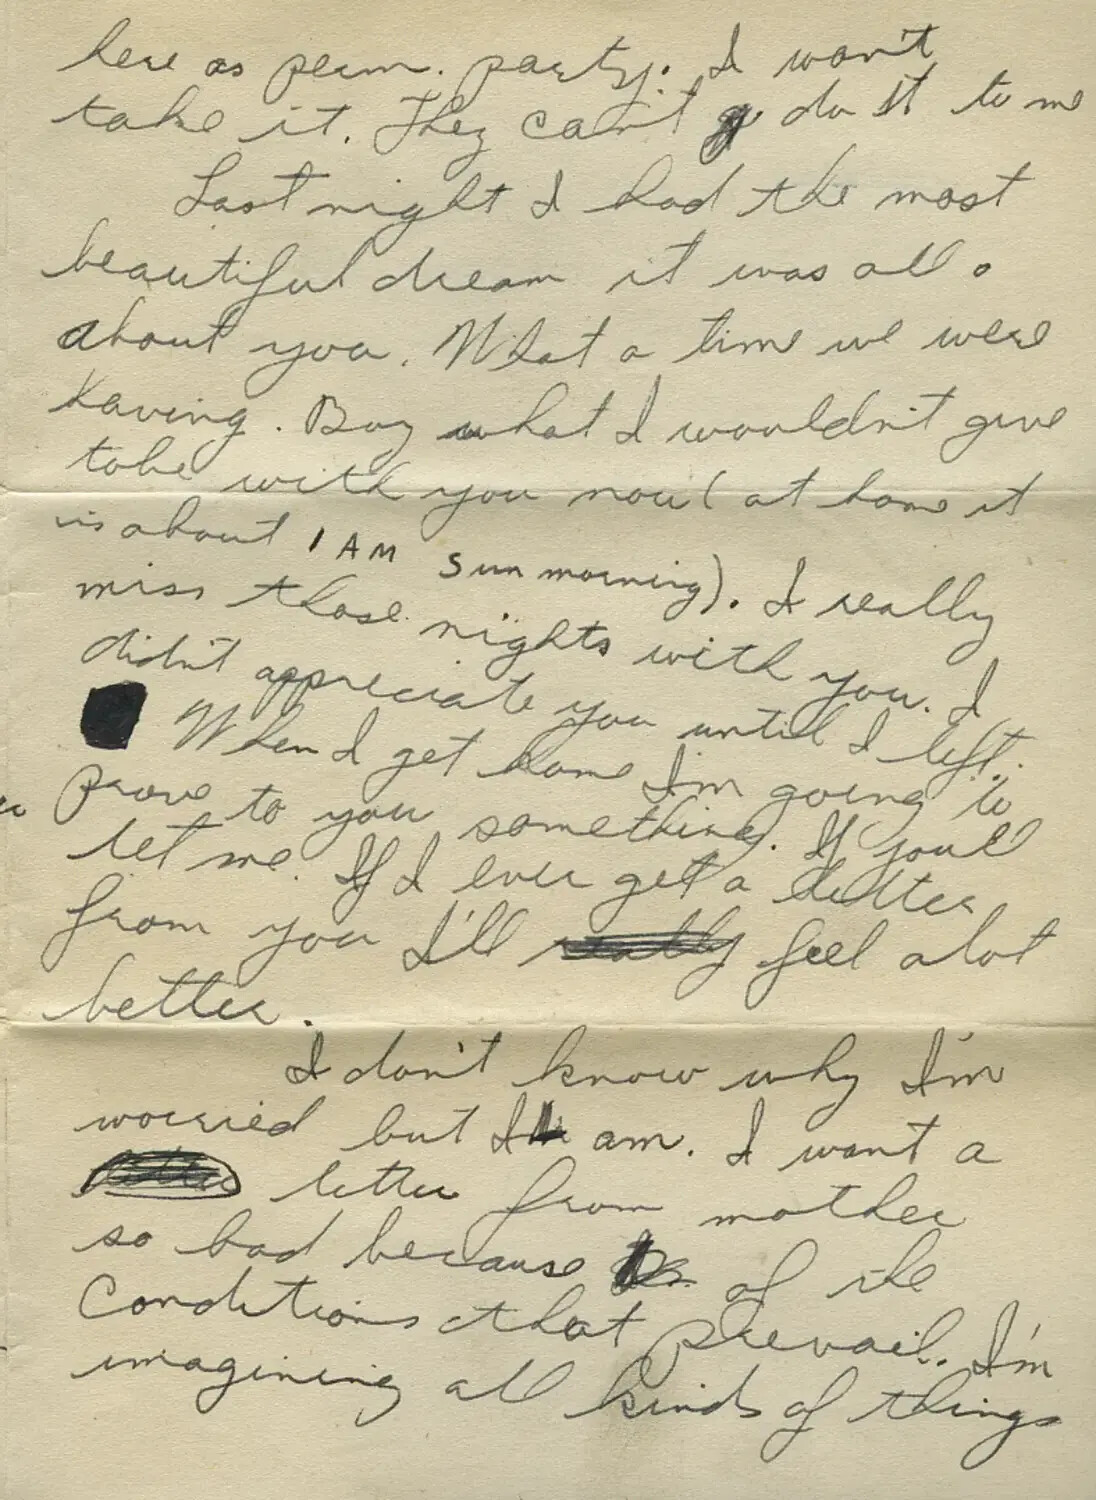 here as perm. party. I won't
take it. They can't do it to me
Last night I had the most
beautiful dream it was all a
about you. What a time we were
having. Boy what I wouldn't give
to be with you now (at home it
is about 1 AM Sun morning). I really
miss those nights with you. I
didn't appreciate you until I left.
When I get home I'm going to
prove to you something. If you'll
let me. If I ever get a letter
from you I'll really feel alot
better.
I don't know why I'm
worried but I am. I want a
letter from mother
so bad because of the
conditions that prevail. I'm
imagining all kinds of things